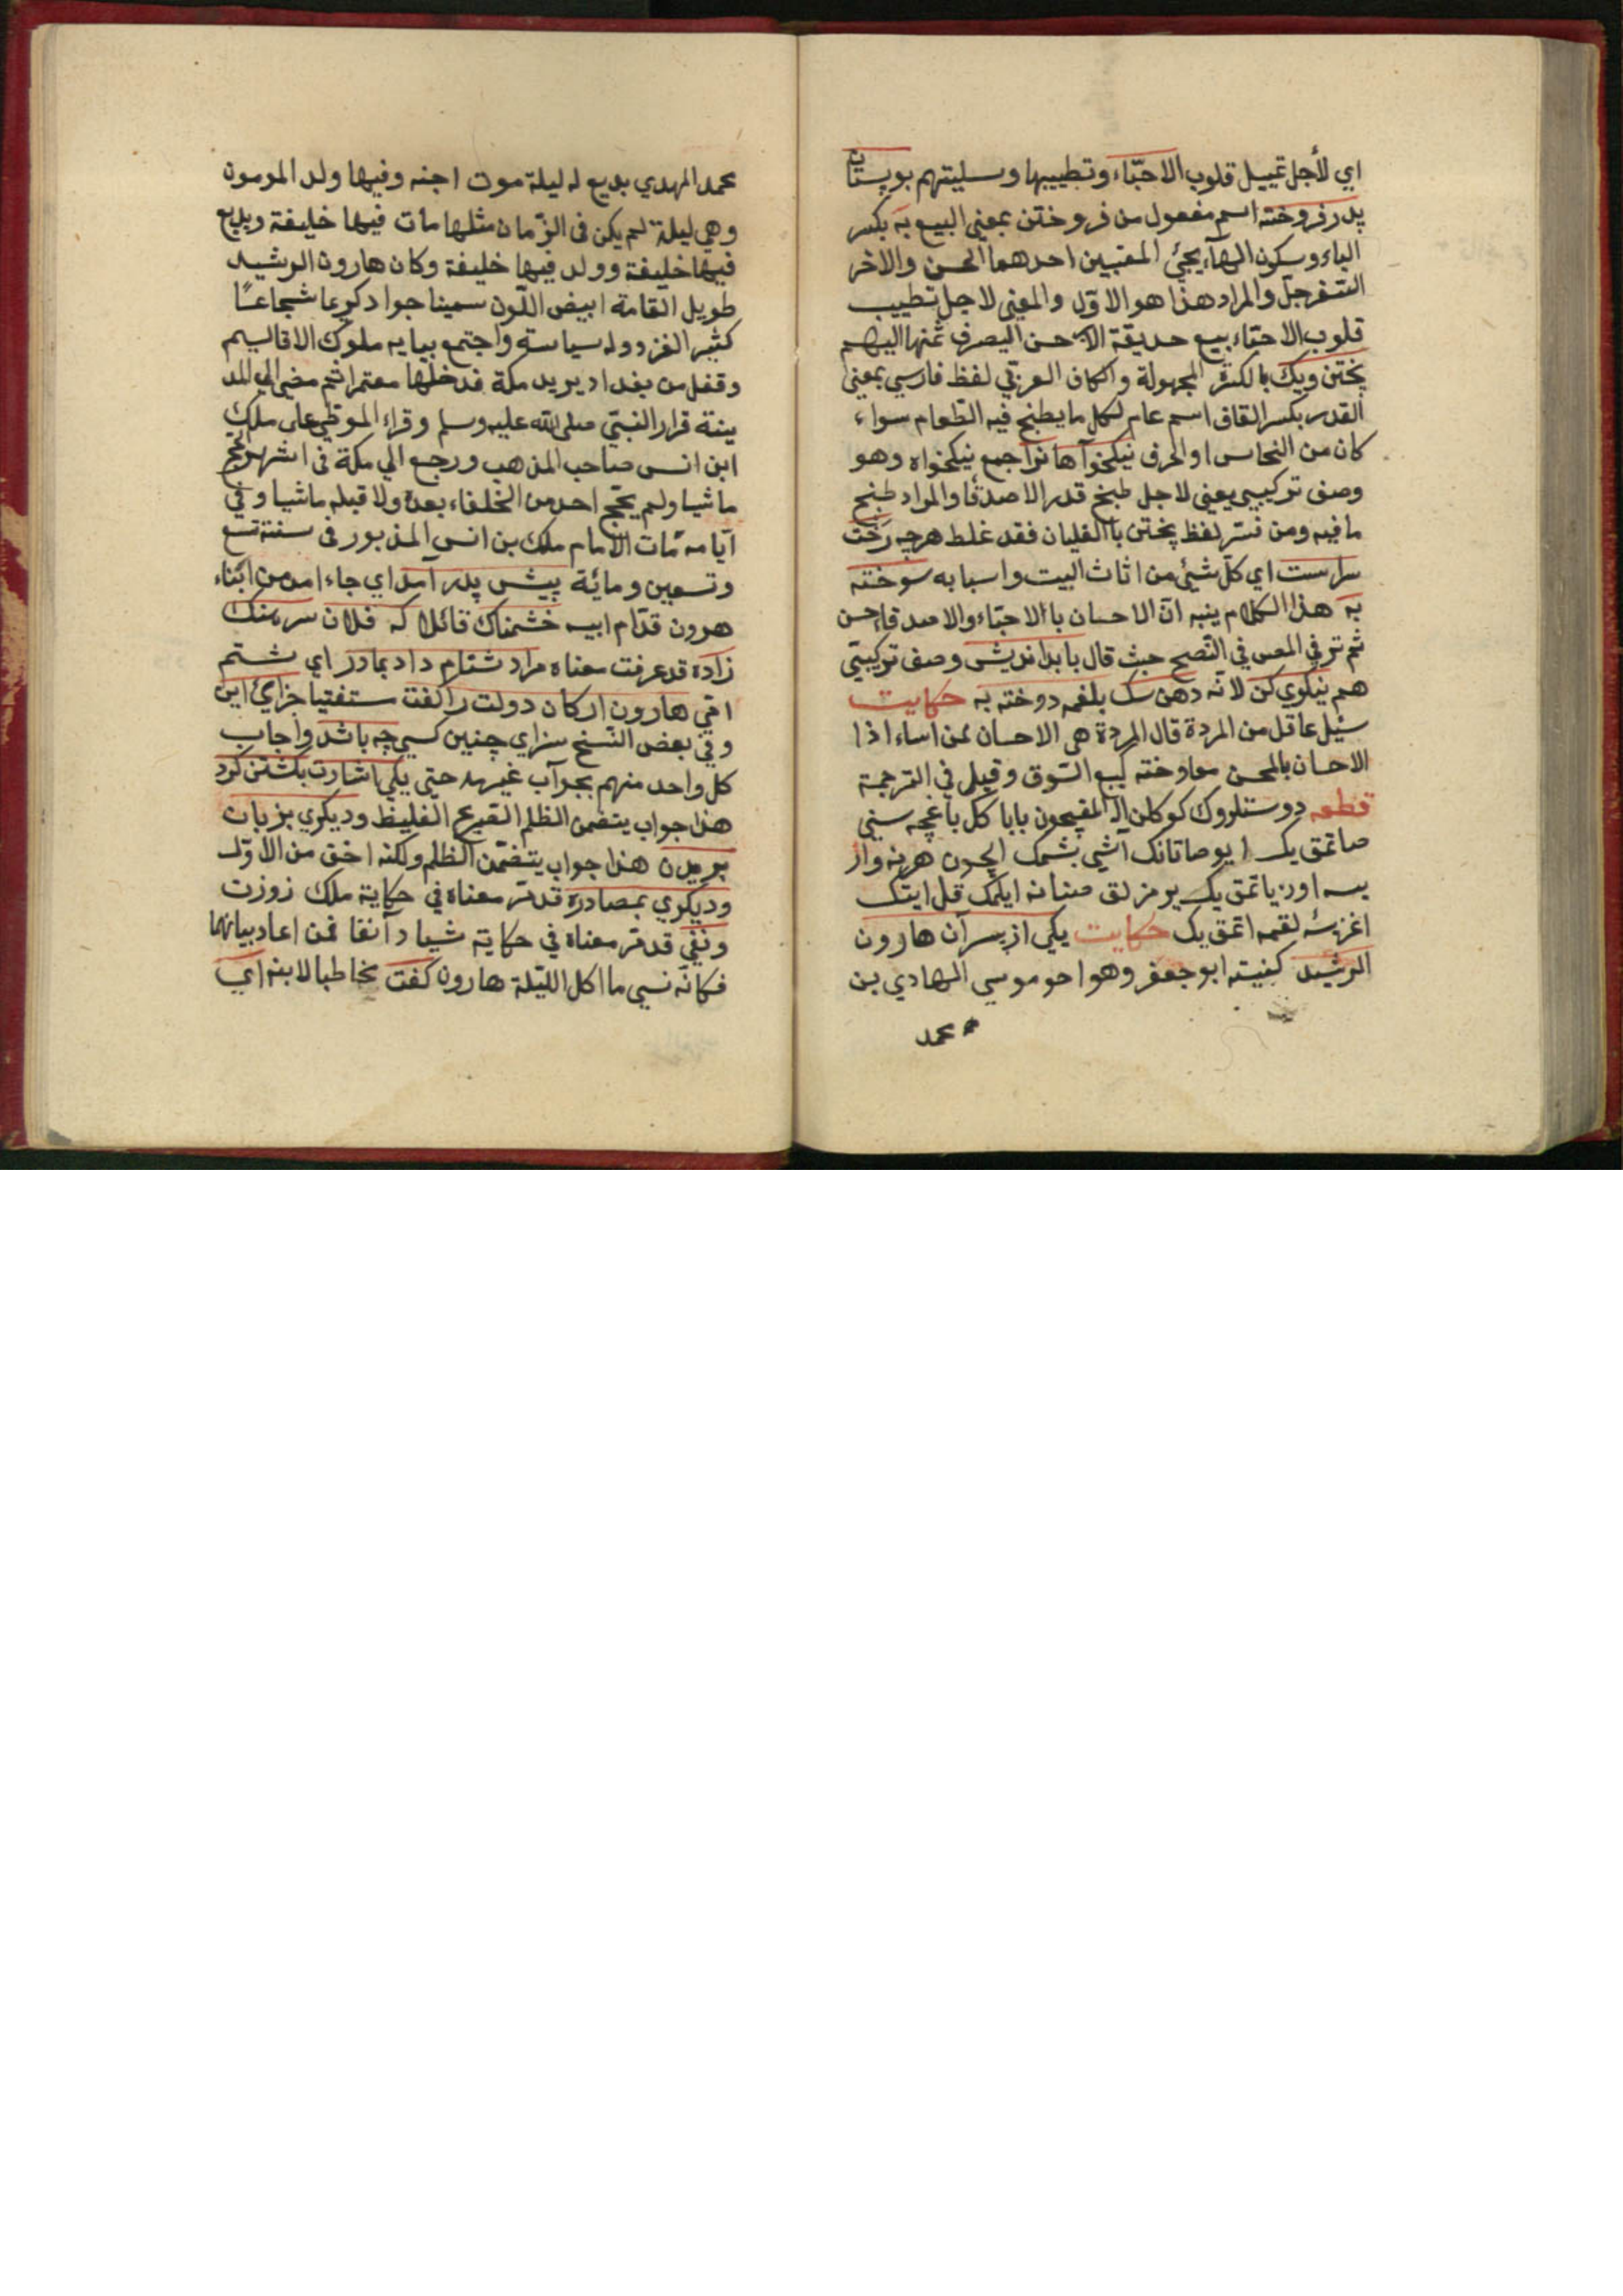 اي لأجل تمييل قلوب الاحبّاء وتطييبها وسليتهم بوستان
پدر فروخته اسم مفعول من فروختن بمعني البيع به بكسر
الباء وسكون الهآء يجئ المعنيين احدهما الحسن والاخر
السّفرجل والمراد هذا هو الاوّل والمعني لاجل تطييب
قلوب الاحبّاء بيع حديقة الاب حسن اليصرف ثمنها اليهم
پختن ويك بالكسر المجهولة والكاف العربّي لفظ فارسي بمعني
القدر بكسر القاف اسم عام لكل ما يطبخ فيه الطّعام سواء
كان من النحاس او الخرف نيكخوآهانرا جمع نيكخواه وهو
وصف تركيبي يعني لاجل طبخ قدر الاصدقا والمراد طبخ
ما فيه ومن فسّر لفظ پختن باالغليان فقد غلط هرچه رَخْت
سراست اي كلّ شيئ من اثاث البيت واسبابه سوخته
به هذا الكلام ينبه انّ الاحسان باالاحبّاء والاصدقاء حسن
ثم ترقي المص في النّصح حيث قال بابداندیش وصف تركيبيّ
هم نيكوي كن لانّه دهن سك بلقمه دوخته به حكايت
سئل عاقل من المردة قال المردة هي الاحسان لمن اساء اذا
الاحسان بالمحسن معاوضته كبيع السّوق وقيل في الترجمة
قطعه دوستلروك كوكلن اله المقيچون بابا كل باغچه سني
صاتمق يك ايو صاتانك آشي بشمك ايچون هرنه وار
يسه اوده ياتمق يك يومزلق صنانه ايلك قل ايتك
اغزينه لقمه اتمق يك حكايت يكي از پسرآن هارون
الرّشيد كنيته ابو جعفر وهو اخو موسي الهادي بن
محمد
محمد المهدي بديع له ليلة موت اخيه وفيها ولد المومون
وهي ليلة لم يكن فى الزّمان مثلها مات فيها خليفة وبديع
فيها خليفة وولد فيها خليفة وكان هارون الرشيد
طويل القامة ابيض اللّون سمينا جوادا كريما شجاعًا
كثير الغزو وله سياسة واجتمع ببايه ملوك الاقاليم
وقفل من بغداد يريد مكة فدخلها معتمرا ثم مضي الي المد
ينة فزار النبيّ صلى الله عليه وسلم وقراء الموطّي على ملك
ابن انس صاحب المذهب ورجع الي مكة فى اشهر الحج
ماشيا ولم يحجّج احد من الخلفاء بعده ولا قبله ماشيا وفي
ايّامه مات الامام ملك بن انس المذبور فى سنة تسع
وتسعين ومائة پيش پدر آمد اي جاء احد من ابناء
هرون قدّام ابيه خشمناك قائلا كه فلان سرهنك
زاده قد عرفت معناه مراد شتنام داد بمادر اي شتم
امّي هارون اركان دولت را كفت ستفتيا جزاي اين
وفي بعض النّسخ سزاي چنين كسي چه باشد واجاب
كل واحد منهم بجوآب غيرهه حتي يكي اشارت بكشتن كرد
هذا جواب يتضمن الظلم القبيح الغليظ وديكري بزبان
بريدن هذا جواب يتضمّن الظلم ولكنه اخف من الاوّل
وديكري بمصادره قد مّر معناه في حكاية ملك زوزن
ونفي قد مّر معناه في حكاية شياد آنفا فمن اعاد بيانهما
فكانّه نسي ما اكل اللّيلة هارون كفت مخاطبا لابنه اي